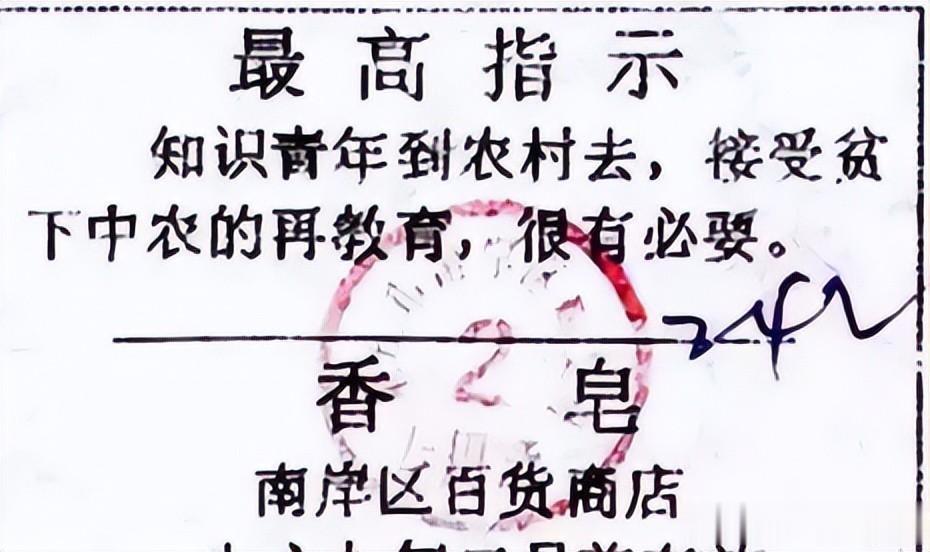 最高指示
知识青年到农村去，接受贫
下中农的再教育，很有必要。
香皂
南岸区百货商店